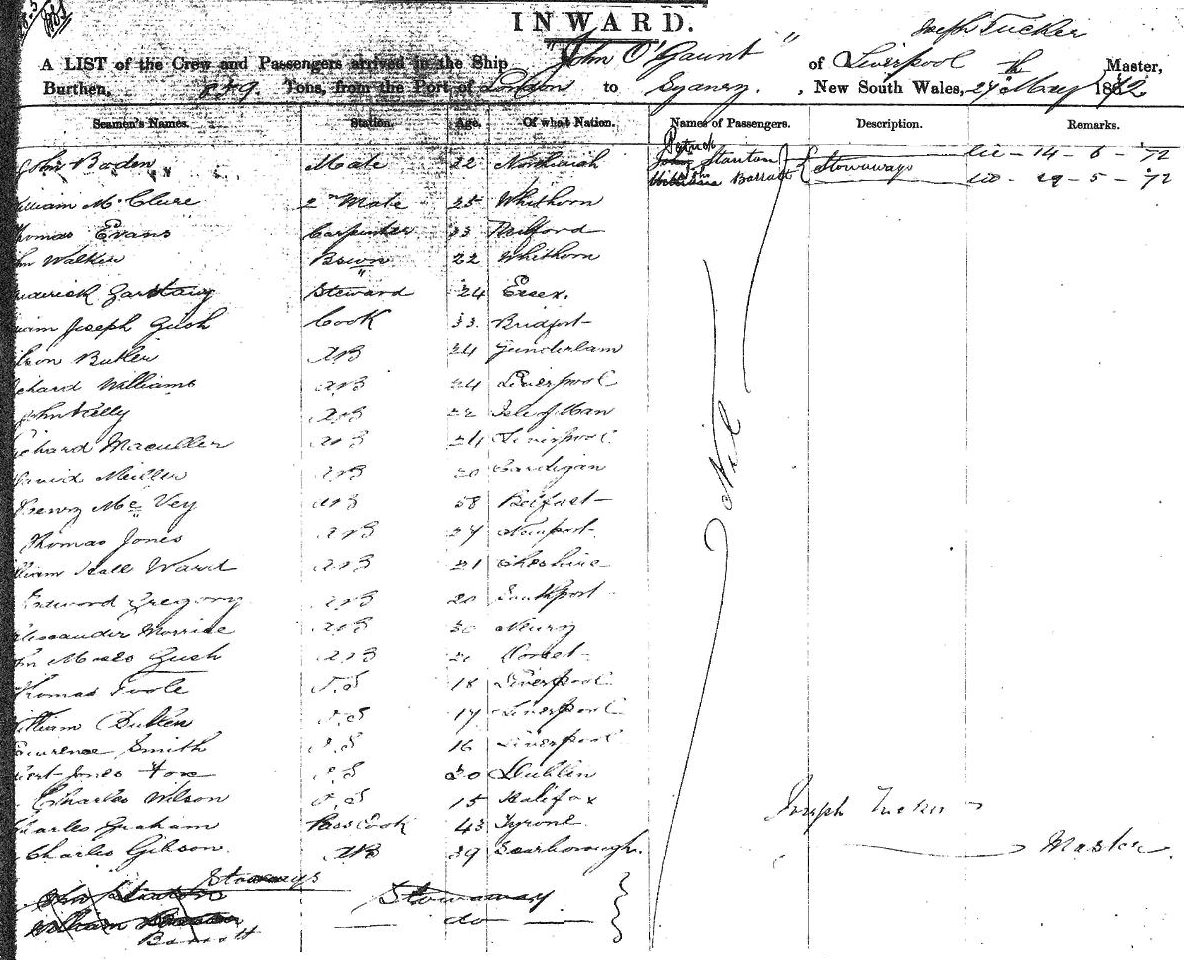 INWARD.
Joseph Tucker
A LIST of the Crew and Passengers arrived in the Ship "John O'Gaunt" of Liverpool Master,
Burthen, Tons, from the Port of London to Sydney, New South Wales, 24th May 1872
Seamen's Names. Station. Age. Of what Nation. Names of Passengers. Description. Remarks.
Patrick
John Boden Mate 22 Northwich Stanton Stowaways lie - 14 - 6 - 72
Barratt lie - 29 - 5 - 72
illiam McClure 2nd Mate 25 Whithorn
homas Evans Carpenter 33 Milford
hn Walker Bosun 22 Whithorn
rederick Steward 24 Essex.
Joseph Gush Cook 33 Bridport
Butler AB 24 Sunderland
ichard Williams AB 24 Liverpool
John Kelly AB 22 Isle of Man
ichard AB 24 Liverpool
David AB 20 Cardigan
Henry McVey AB 58 Belfast
Nil
Thomas Jones AB 27 Newport
lliam Hall Ward AB 21 Cheshire
Edward Gregory AB 20 Southport
lexander AB 30 Newry
hn Moses Gush AB 21 Dorset
Thomas Toole O.S 18 Liverpool
illiam O.S 17 Liverpool
Lawrence Smith O.S 16 Liverpool
bert Jones Fox O.S 20 Dublin
Charles Wilson O.S 15 Halifax
Charles Graham Pass Cook 43 Tyrone
Joseph Tucker
Charles Gibson. AB 39 Scarborough.
Master.
Stowaways
John Stanton Stowaway
William do
Barratt